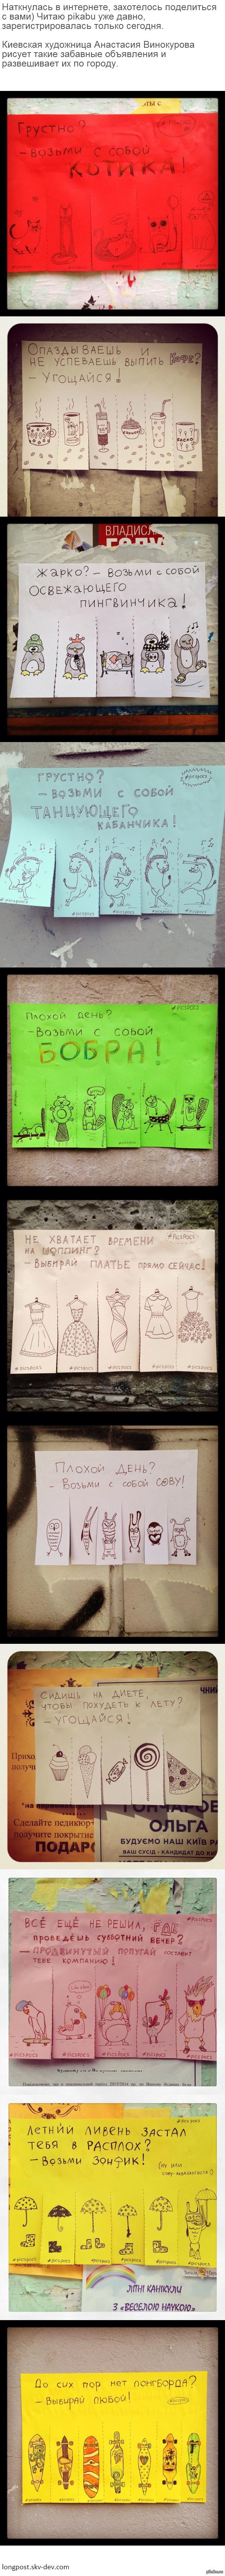 Наткнулась в интернете, захотелось поделиться
с вами) Читаю pikabu уже давно,
зарегистрировалась только сегодня.
Киевская художница Анастасия Винокурова
рисует такие забавные объявления и
развешивает их по городу.
Грустно?
- Возьми с собой
котика!
Опаздываешь и
не успеваешь выпить кофе?
- Угощайся!
CACAO
ВЛАДИСЛ
Жарко? - Возьми с собой
освежающего
пингвинчика!
Грустно?
- Возьми с собой
танцующего
кабанчика!
#picspocs
Плохой день?
- Возьми с собой
БОБРА!
#picspocs
Не хватает времени
на шоппинг?
- Выбирай платье прямо сейчас!
#picspocs
Плохой день?
- Возьми с собой сову!
Сидишь на диете,
чтобы похудеть к лету?
- Угощайся!
Сделайте педикюр+
получите покрытие
ПОДАР
ГОНЧАРОВ
ОЛЬГА
БУДУЄМО НАШ КИЇВ РА
ВАШ СУСІД - КАНДИДАТ ДО КИ
#picspocs
Всё ещё не решил, как
проведёшь субботний вечер?
- Продвинутый попугай составит
тебе компанию!
#picspocs
Летний ливень застал
тебя в расплох?
- Возьми зонтик!
#picspocs
ЛІТНІ КАНІКУЛИ
З «ВЕСЕЛОЮ НАУКОЮ»
До сих пор нет лонгборда?
- Выбирай любой!
longpost.skv-dev.com